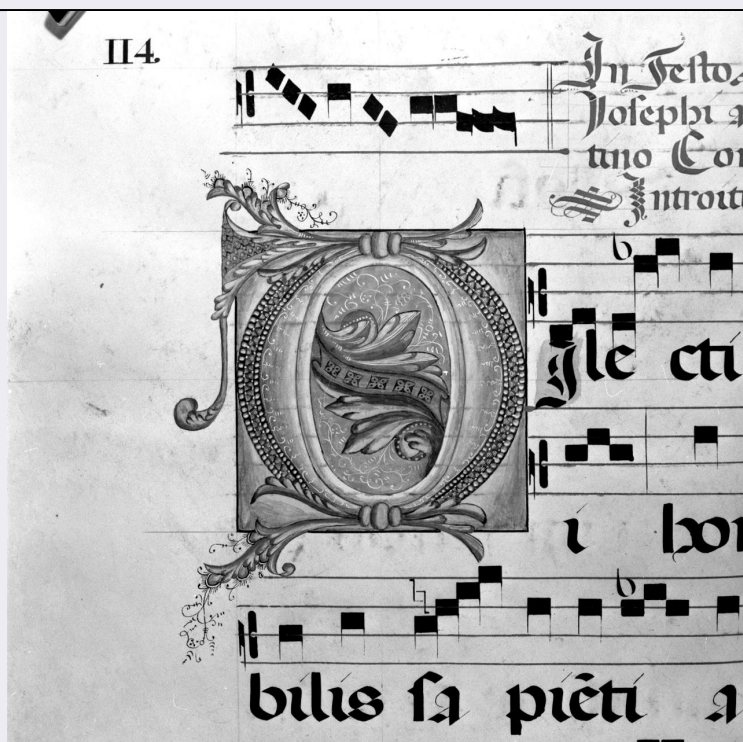 114.
In Festo
Josephi a
tino Con
Introit
DIle cti
i hon
bilis sa piẽti a